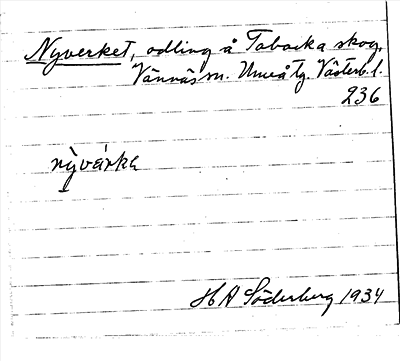 Nyverket, odling å Tabacka skog,
Vännäs sn. Umeå tg. Västerb. l.
236
nỳvárka
HA Söderberg 1934